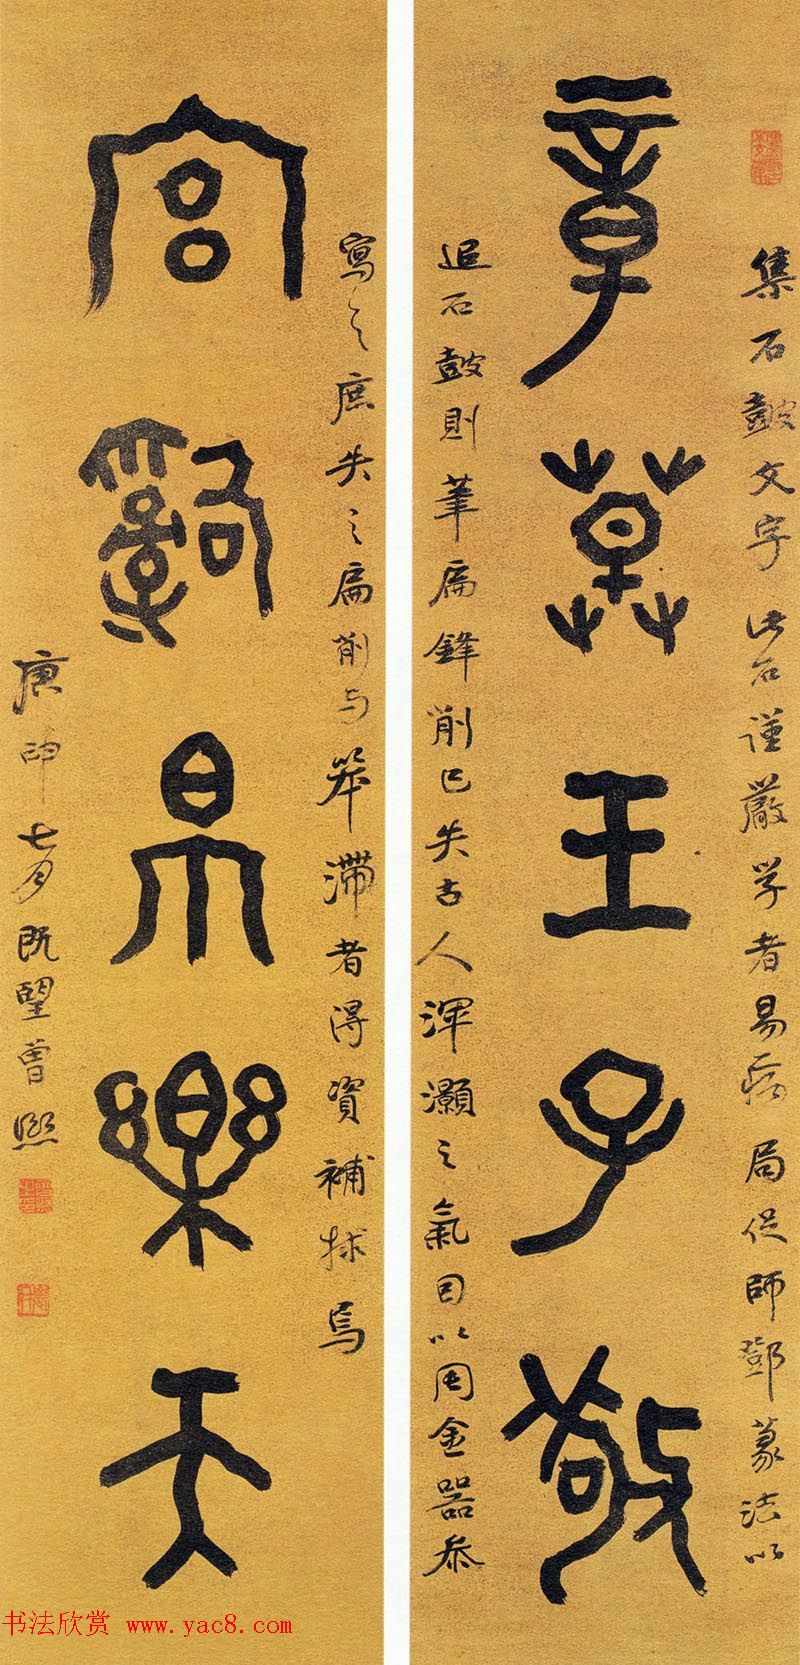 章草王子敬
集石鼓文字此石謹嚴学者易病局促師鄧篆法以
追石鼓則筆扁鋒削已失古人渾灝之氣因以周金器叅
宮辭帛樂天
寫之庶失之扁削与笨滯者得資補捄焉
庚申七月既望曾熙
书法欣赏 www.yac8.com